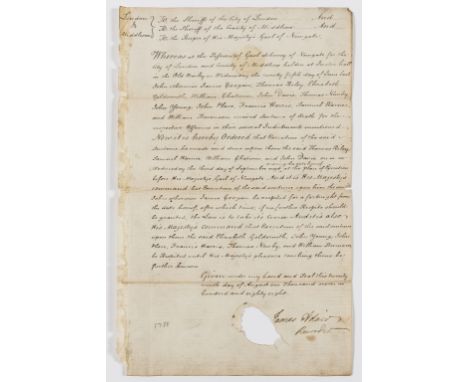 London & Middlesex
To the Sheriffs of the City of London And
To the Sheriff of the County of Middlesex And
To the Keeper of His Majesty's Gaol of Newgate.
Whereas at the Session of Gaol Delivery of Newgate for the
City of London and County of Middlesex holden at Justice Hall
in the Old Bailey on Wednesday the twenty fifth day of June last
John James Grogan, Thomas Riley, Elizabeth
Goldsmith, William Chatwin, John Davis, Thomas Newby,
John Young, John Francis Harris, Samuel
and William received Sentence of Death for the
respective Offences in their several Indictments mentioned
Now it is hereby Ordered that Execution of the said
Sentence be made and done upon them the said Thomas Riley,
Samuel William Chatwin and John Davis on
Wednesday the third day of September next at the place of Execution
before His Majesty's Gaol of Newgate. And it is His Majesty's
command that Execution of the said sentence upon them the said
John James Grogan be respited for a fortnight from
the date hereof, after which time, if no further Respite should
be granted, the Law is to take its Course And it is also
His Majesty's Command that Execution of the said sentence
upon them the said Elizabeth Goldsmith, John Young, John
Francis Harris, Thomas Newby, and William
be Respited until His Majesty's pleasure touching them be
further known
Given under my hand and Seal this twenty
ninth day of August one Thousand seven
hundred and eighty eight.
James Adair
Recorder
1788